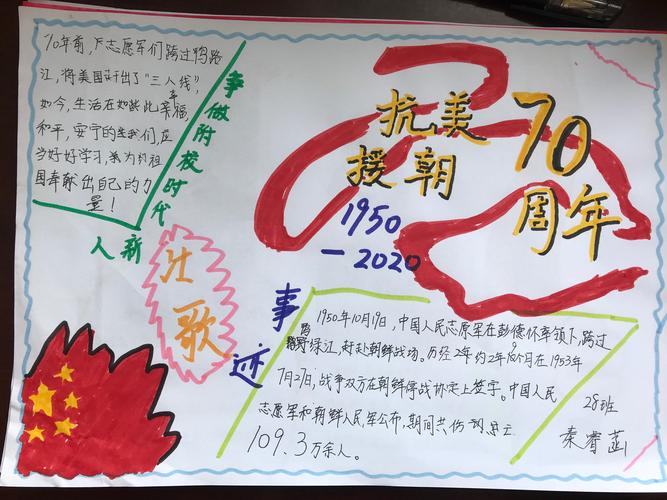 70年前，志愿军们跨过鸭路
江，将美国赶出了"三八线"，
如今，生活在如此幸福，
和平，安宁的我们，应
当好好学习，为祖
国奉献出自己的力
量！
争做附校时代
新人
壮歌
抗美
援朝
70
周年
1950
—2020
事迹
1950年10月19日，中国人民志愿军在彭德怀率领下，跨过
绿江，赶赴朝鲜战场。历经2年约2年9个月在1953年
7月27日，战争双方在朝鲜停战协定上签字。中国人民
志愿军和朝鲜人民军公布，期间共伤
109.3万余人。
28班
秦